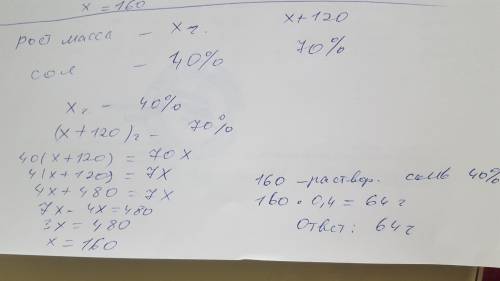 x = 160
рост масса – x г. x+120
сол – 40% 70%
x г – 40%
(x + 120) г – 70%
40(x+120) = 70x
4(x+120) = 7x
4x + 480 = 7x
7x - 4x = 480
3x = 480
x = 160
160 – раствор. соль 40%
160 · 0,4 = 64 г
Ответ: 64 г